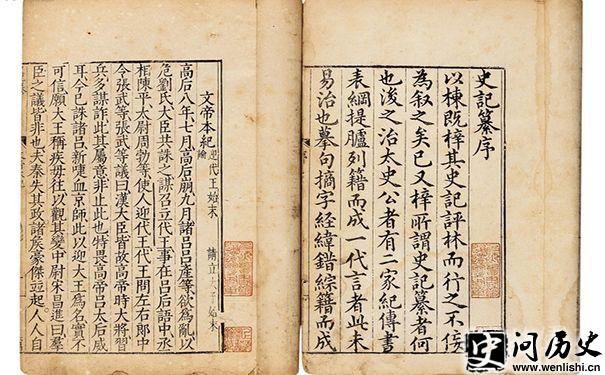 史記纂序
以棟既梓其史記評林而行之不佞
為敘之矣已又梓所謂史記纂者何
也後之治太史公者有二家紀傳書
表綱提臚列籍而成一代言者此未
易治也摹句摘字經緯錯綜籍而成
文帝本紀
迎代王始末
論
請立太子始末
高后八年七月高后崩九月諸呂呂產等欲為亂以
危劉氏大臣共誅之謀召立代王事在呂后語中丞
相陳平太尉周勃等使人迎代王代王問左右郎中
令張武等張武等議曰漢大臣皆故高帝時大將習
兵多謀詐此其屬意非止此也特畏高帝呂太后威
耳今已誅諸呂新啑血京師此以迎大王為名實不
可信願大王稱疾毋往以觀其變中尉宋昌進曰羣
臣之議皆非也夫秦失其政諸矦豪傑竝起人人自
史问历史
www.wenlishi.cn